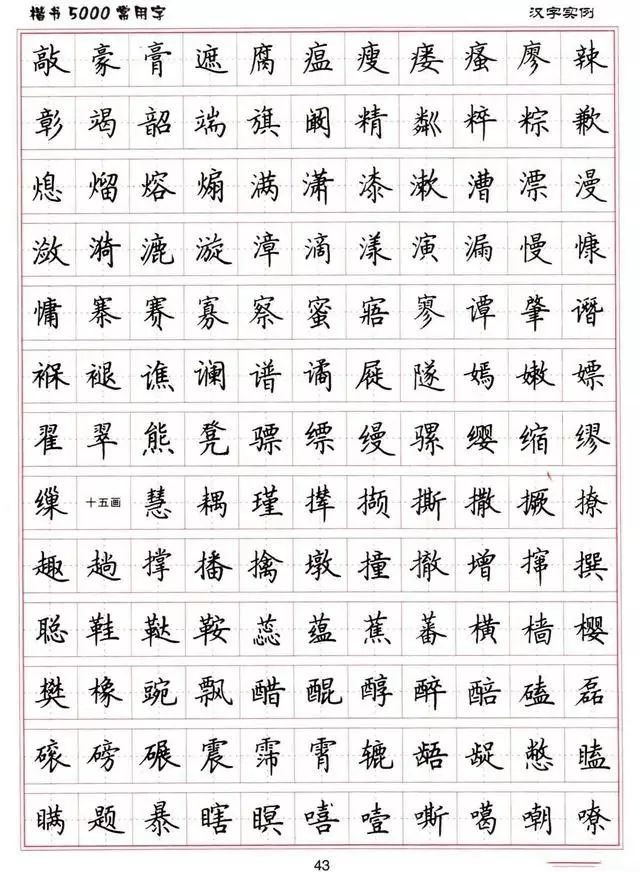 楷书5000常用字 汉字实例
敲豪膏遮腐瘟瘦瘘瘙廖辣
彰竭韶端旗阚精粼粹粽歉
熄熘熔煽满潇漆漱漕漂漫
潋漪漉漩漳滴漾演漏慢慷
慵寨赛寡察蜜寤寥谭肇谮
褓褪谯谰谱谲屣隧嫣嫩嫖
翟翠熊凳骠缥缦骡缨缩缪
缫 十五画 慧耦瑾撵撷撕撒撅撩
趣趟撑播擒墩撞撤增撺撰
聪鞋鞑鞍蕊蕴蕉蕃横樯樱
樊橡豌飘醋醌醇醉醅磕磊
磙磅碾震霈霄辘龉龊憋瞌
瞒题暴瞎瞑嘻噎嘶噶嘲嘹
43